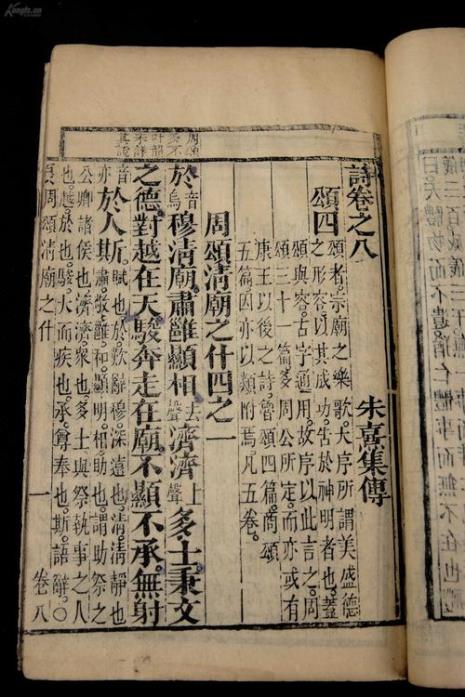 Kongfz.cn
曰天體物而不遺猶仁體事而無不
儀三百威儀三千
周頌
多不
叶韻
未詳
其說
詩卷之八
朱熹集傳
頌四
頌者宗廟之樂歌大序所謂美盛德
之形容以其成功告於神明者也蓋
頌與容古字通用故序以此言之周
頌三十一篇多周公所定而亦或有
康王以後之詩魯頌四篇商頌
五篇因亦以類附焉凡五卷
周頌清廟之什四之一
於音烏穆清廟肅雝顯相去聲濟濟上聲多士秉文
之德對越在天駿奔走在廟不顯不承無射
音亦於人斯
賦也於歎辭穆深遠也清清靜也
肅敬雝和顯明相助也謂助祭之
公卿諸侯也濟濟衆也多士與祭執事之人
也越於也駿大而疾也承尊奉也斯語辭○
周頌清廟之什 一 卷八